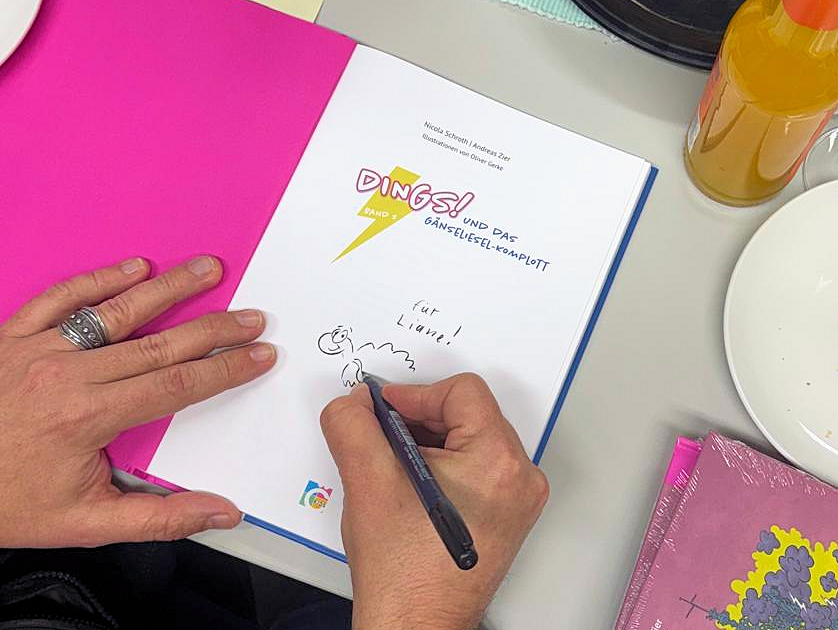 Nicola Schroth | Andreas Zier
Illustrationen von Oliver Gerke
DINGS!
BAND 2
UND DAS
GÄNSELIESEL-KOMPLOTT
für
Liane!